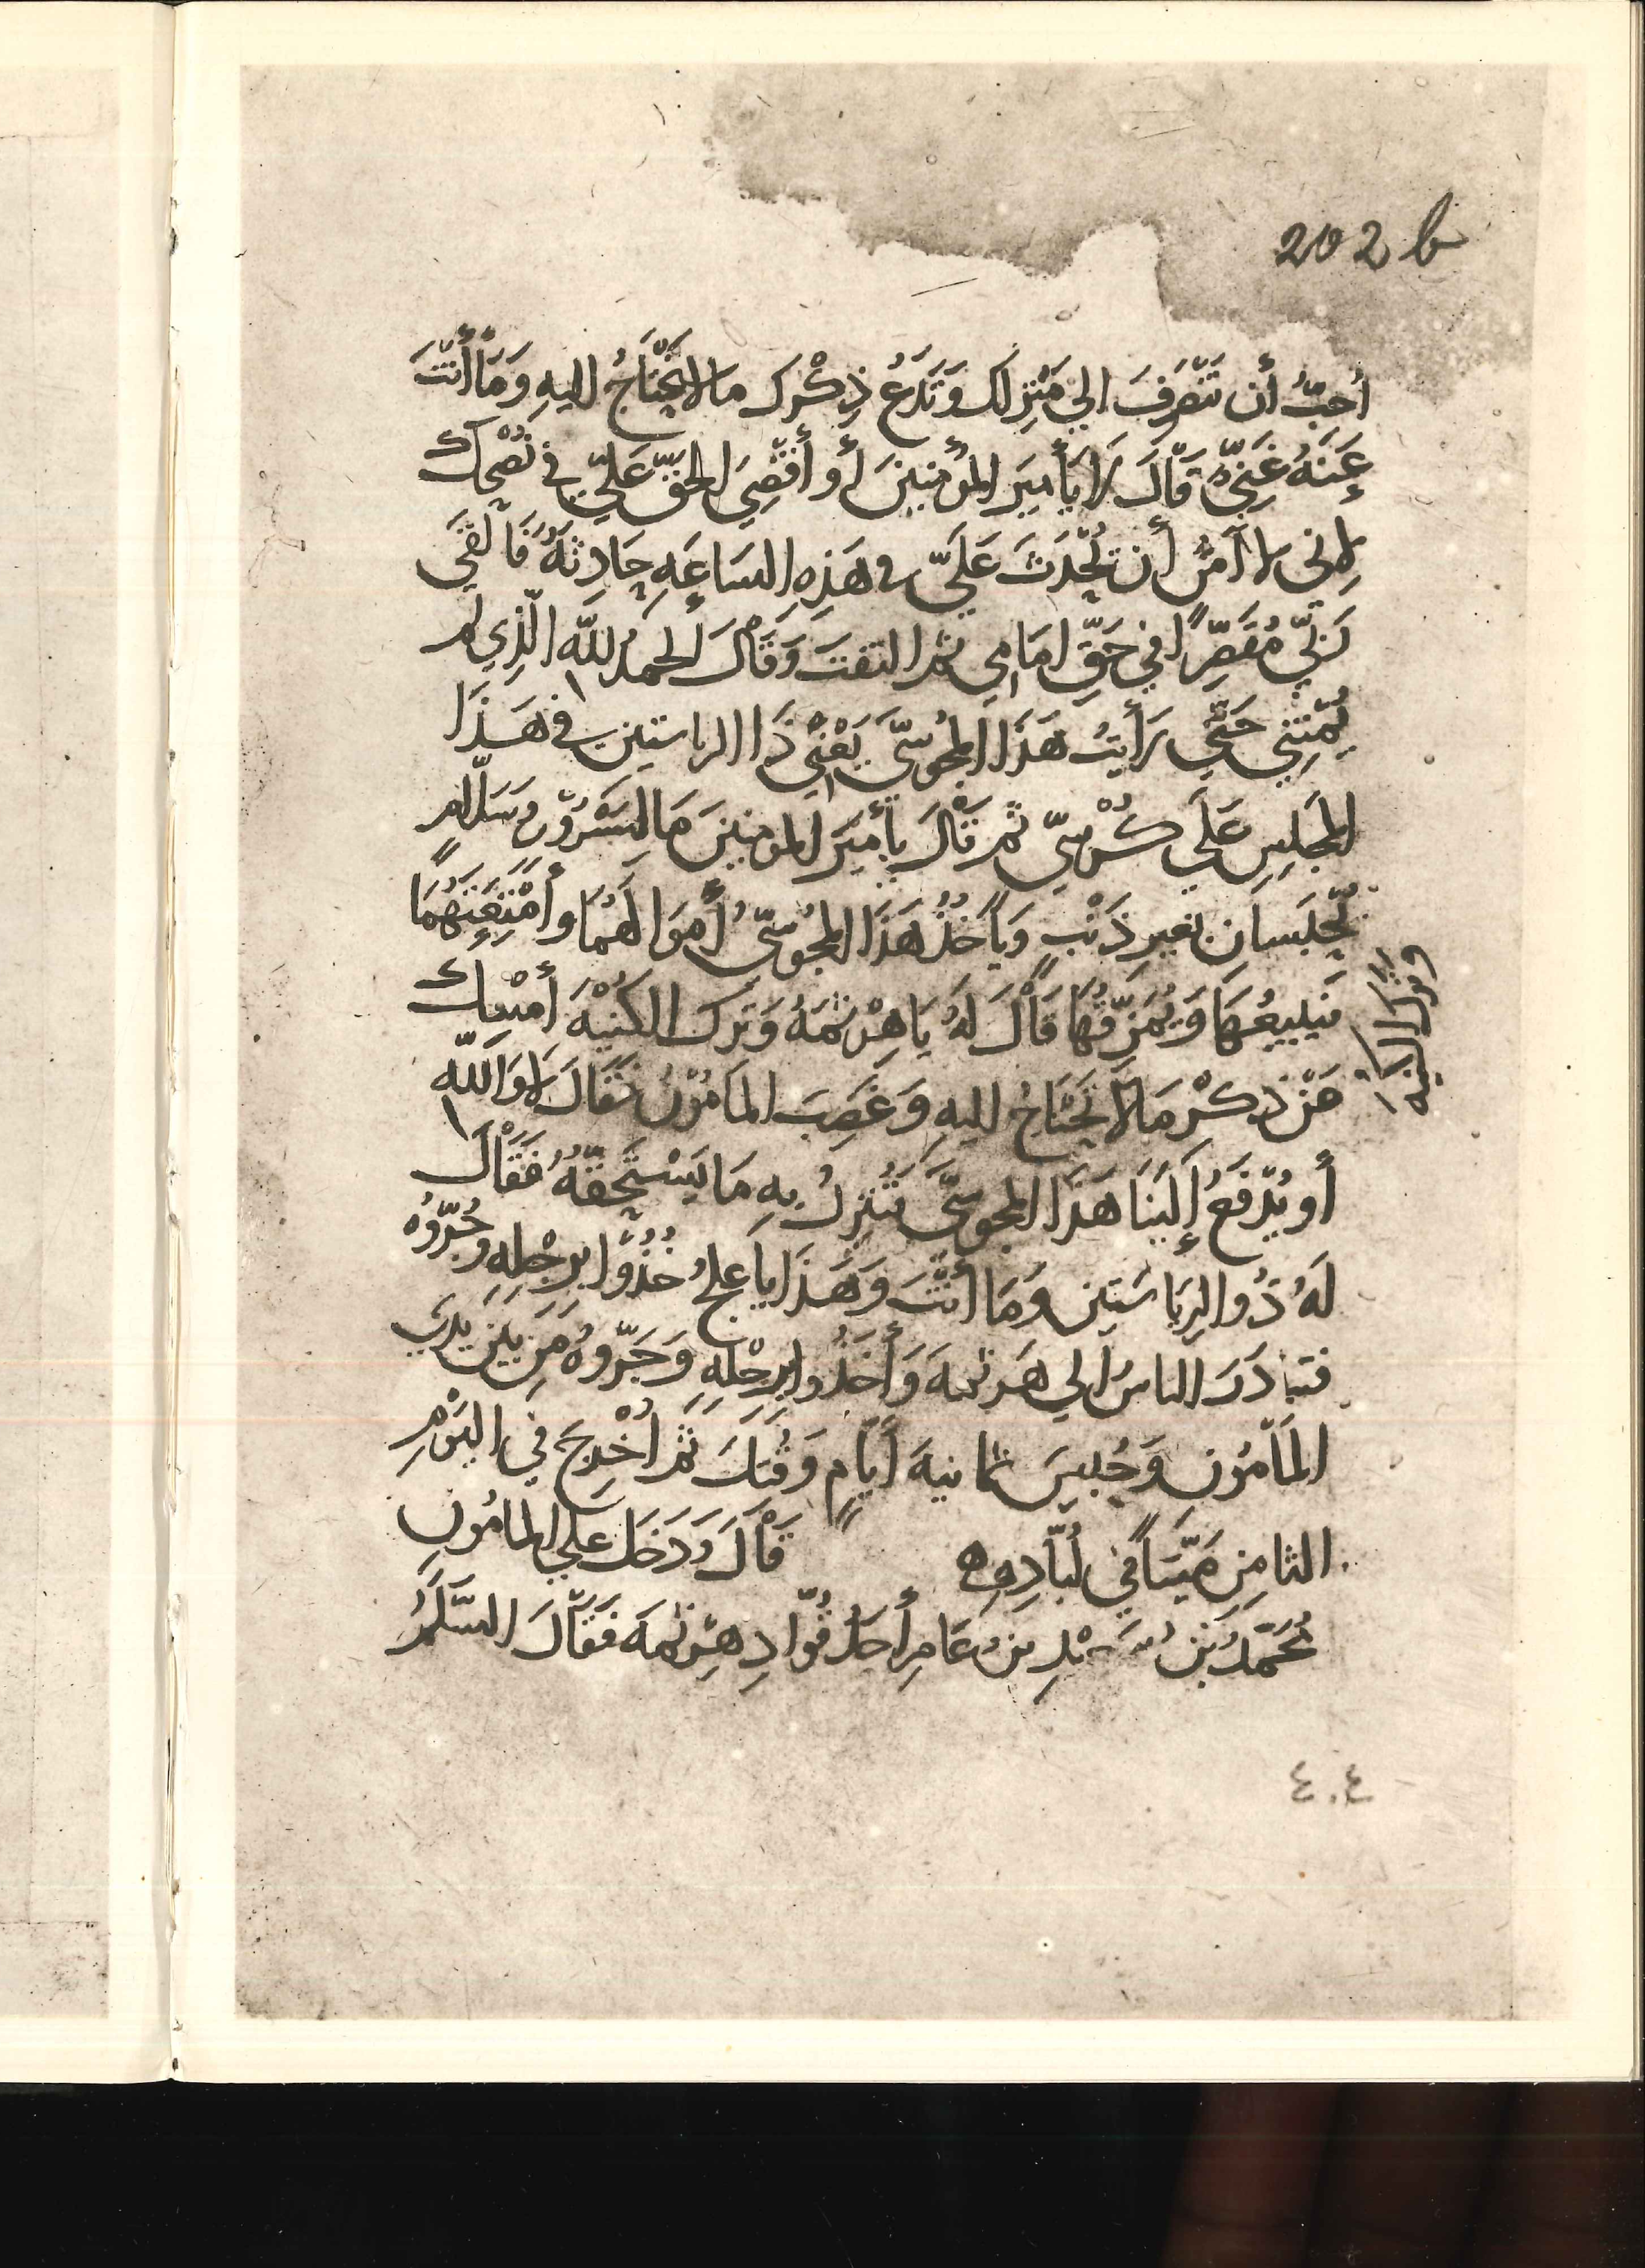 202 b
أُحِبُّ أن تَنْصَرِفَ إلي مَنْزِلكَ وَتَدَعُ ذِكْرَكَ ما لا يُحْتَاجُ إليهِ وَمَا أَنْتَ
عَنَهُ غَنِيٌّ قَالَ لا يَأَمِيرَ المؤمِنينَ أو أَقْضِيَ الحَقَّ عَلَيَّ في نُصْحِكَ
لإني لا آمَنُ أن تُحْدَثَ عَلَيَّ في هَذِهِ السَاعَهِ حَادِثَهُ فَالْقَي
رَبِّي مُقَصِّرًا في حَقِّ إمَامِي ثم التفتَ وَقَالَ الحمدُ للهِ الَّذِي لم
يُمِتْنِي حَتَّي رَأَيتُ هَذَا المجُوسِيَّ يَعْنِي ذَا الرياستين في هَذَا
المجلِسِ عَلَي كُرْسِيّ ثم قَالَ يأميَر المومنينَ مَا لِسَرْوٍ وَسَلَّامٍ
يُحْبَسان بغيرِ ذَنْبٍ وَيَأخُذُ هَذَا المجُوسِيُّ أمْوَالَهُمَا وأمْتِعَتَهُمَا
فيَبِيعُهَا وَيُمَزِّقُهَا قَالَ لَهُ يَاهِرْثمَهُ وَتَرك الكُنْيَهَ أمْسِك
وتَرك الكنيه
عَنْ ذكْرِ مَا لا تَحْتَاجُ إليهِ وَغَضِبَ المَامُونُ فَقَالَ لا وَاللهِ
أو يُدْفَعُ إلَيْنَا هَذَا المجوسِيَّ نَنْزِلُ بِهِ مَا يَسْتَحِقّهُ فَقَالَ
لَهُ ذُو الرِيَاسَتينِ وَمَا أنْتَ وَهَذَا يَا عِلجُ خُذُوا بِرِجْلِهِ وجُرّوُهُ
فتبادَرَ الناسُ إلي هَرثمهَ وَأخَذُوا بِرِجْلِهِ وَجَرّوهُ مِن بَينِ يَدي
المَأمُونِ وَحُبِسَ ثمانيهَ أَيَّامٍ وَقُتِلَ ثُمَّ أُخْرِجَ فِي اليَوْمِ
الثامِنِ مَيّتًا في لُبّادِهِ قَالَ وَدَخَلَ علي المامُونِ
مُحَمَّدُ بْنُ سَعْدِ بنِ عَامِرِ أحَدُ قُوّادِ هِرْثمَه فَقَالَ السَّلَمُ
٤٠٤